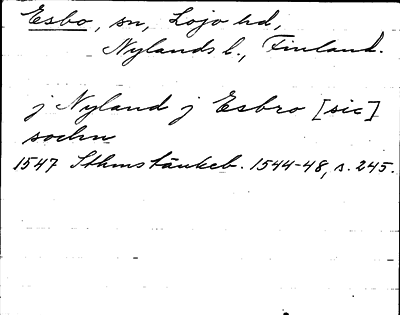 Esbo, sn, Lojo hd,
Nylands l., Finland.
j Nyland j Esbro [sic]
sochn
1547 Sthmstänkeb. 1544-48, s. 245.